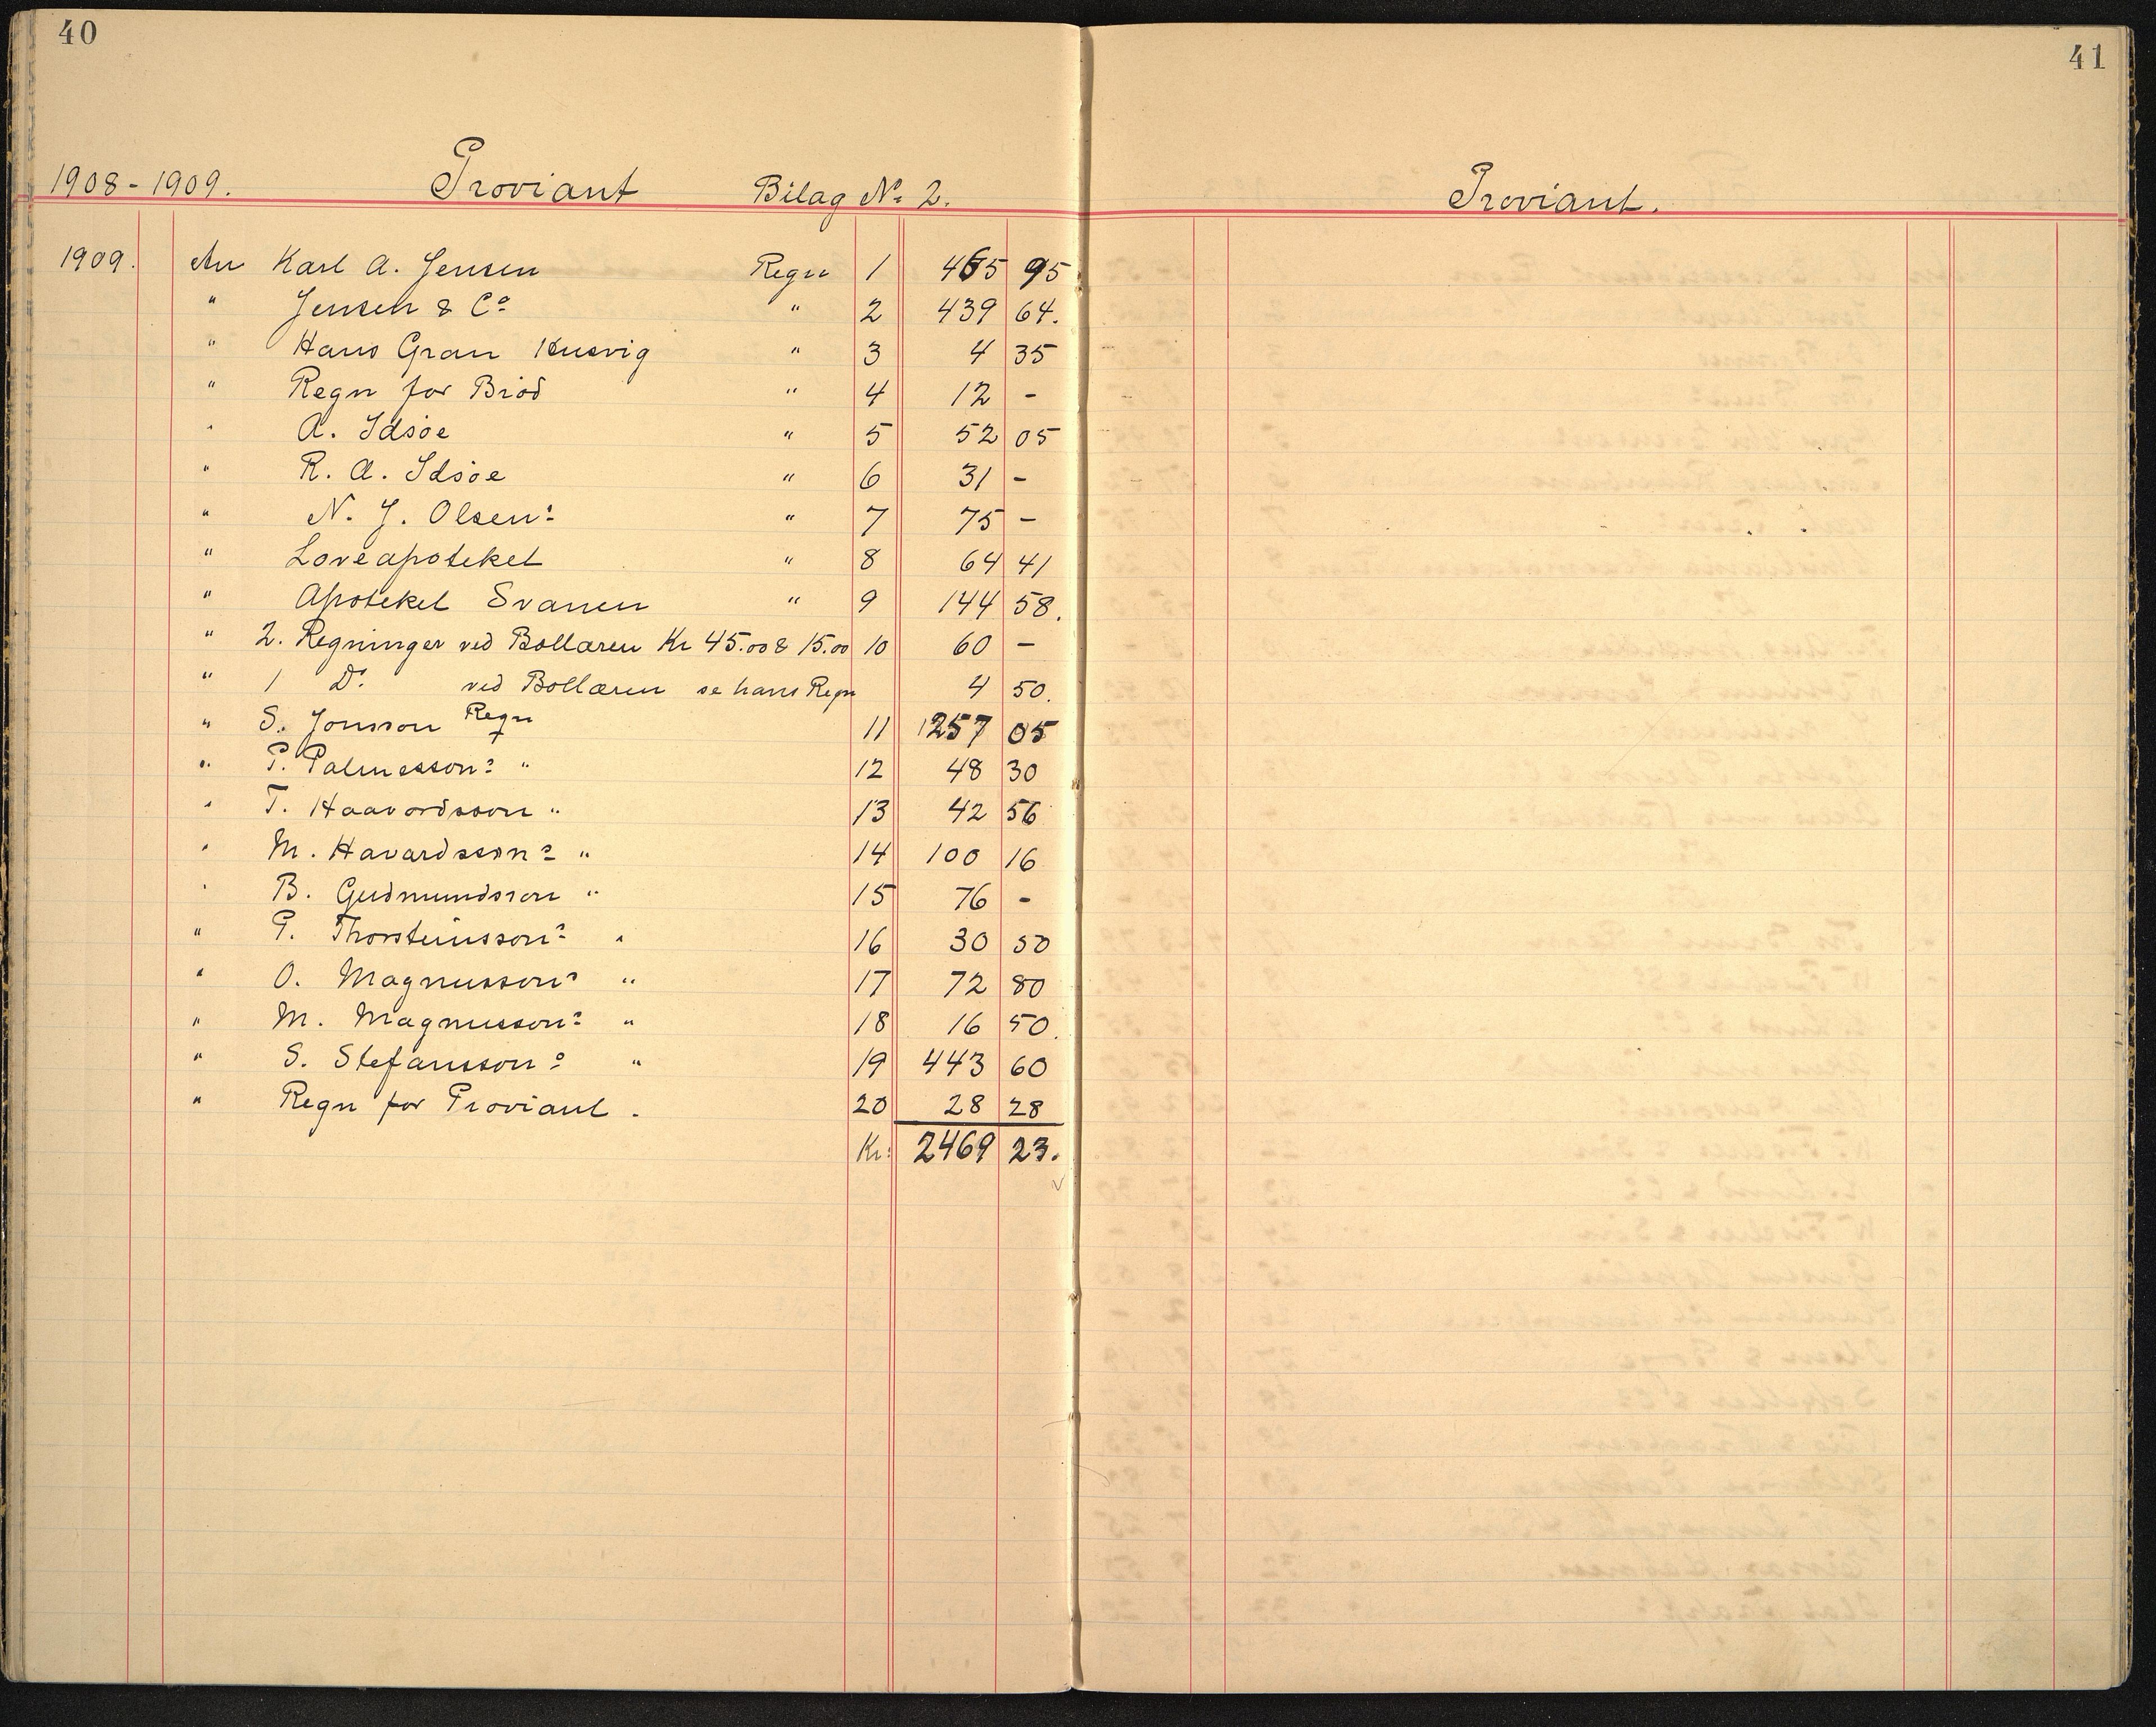 40
1908-1909. Proviant Bilag No 2.
1909. An Karl A. Jensen Regn 1 465 95
" Jensen & Co " 2 439 64.
" Hans Gran Husvig " 3 4 35
" Regn for Brød " 4 12 -
" A. Idsøe " 5 52 05
" R. A. Idsøe " 6 31 -
" N. J. Olsen: " 7 75 -
" Løveapoteket " 8 64 41
" Apoteket Svanen " 9 144 58.
" 2. Regninger ved Bollæren Kr 45.00 & 15.00 10 60 -
" 1 Do. ved Bollæren se hans Regn 4 50.
" S. Jonsson Regn 11 257 05
" P. Palmesson: " 12 48 30
" T. Haavordsson " 13 42 56
" M. Havardsson: " 14 100 16
" B. Gudmundsson " 15 76 -
" P. Thorsteinsson: " 16 30 50
" O. Magnusson: " 17 72 80
" M. Magnusson: " 18 16 50.
" S. Stefansson: " 19 443 60
" Regn for Proviant. 20 28 28
Kr: 2469 23.
41
Proviant.